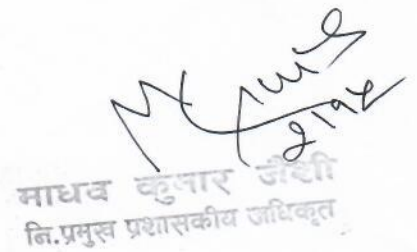 २१९४
माधव कुमार जैशी
नि.प्रमुख प्रशासकीय अधिकृत